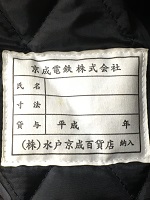 京成電鉄株式会社
氏名
寸法
貸与 平成 年
(株)水戸京成百貨店 納入